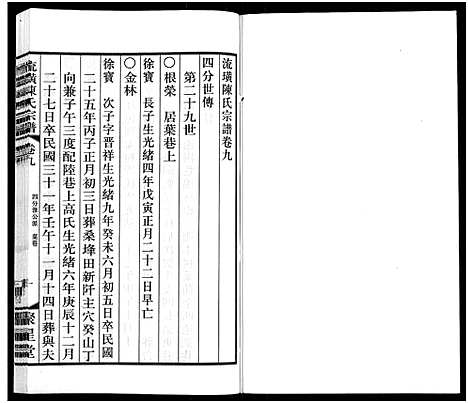 流璜陳氏宗譜卷九
四分世傳
第二十九世
○根榮 居葉巷上
徐寶 長子生光緒四年戊寅正月二十二日早亡
○金林
徐寶 次子字晋祥生光緒九年癸未六月初五日卒民國
二十五年丙子正月初三日葬桑垏田新阡主穴癸山丁
向兼子午三度配陸巷上高氏生光緒六年庚辰十二月
二十七日卒民國三十一年壬午十一月十四日葬與夫
流璜陳氏宗譜
卷九
聚星堂